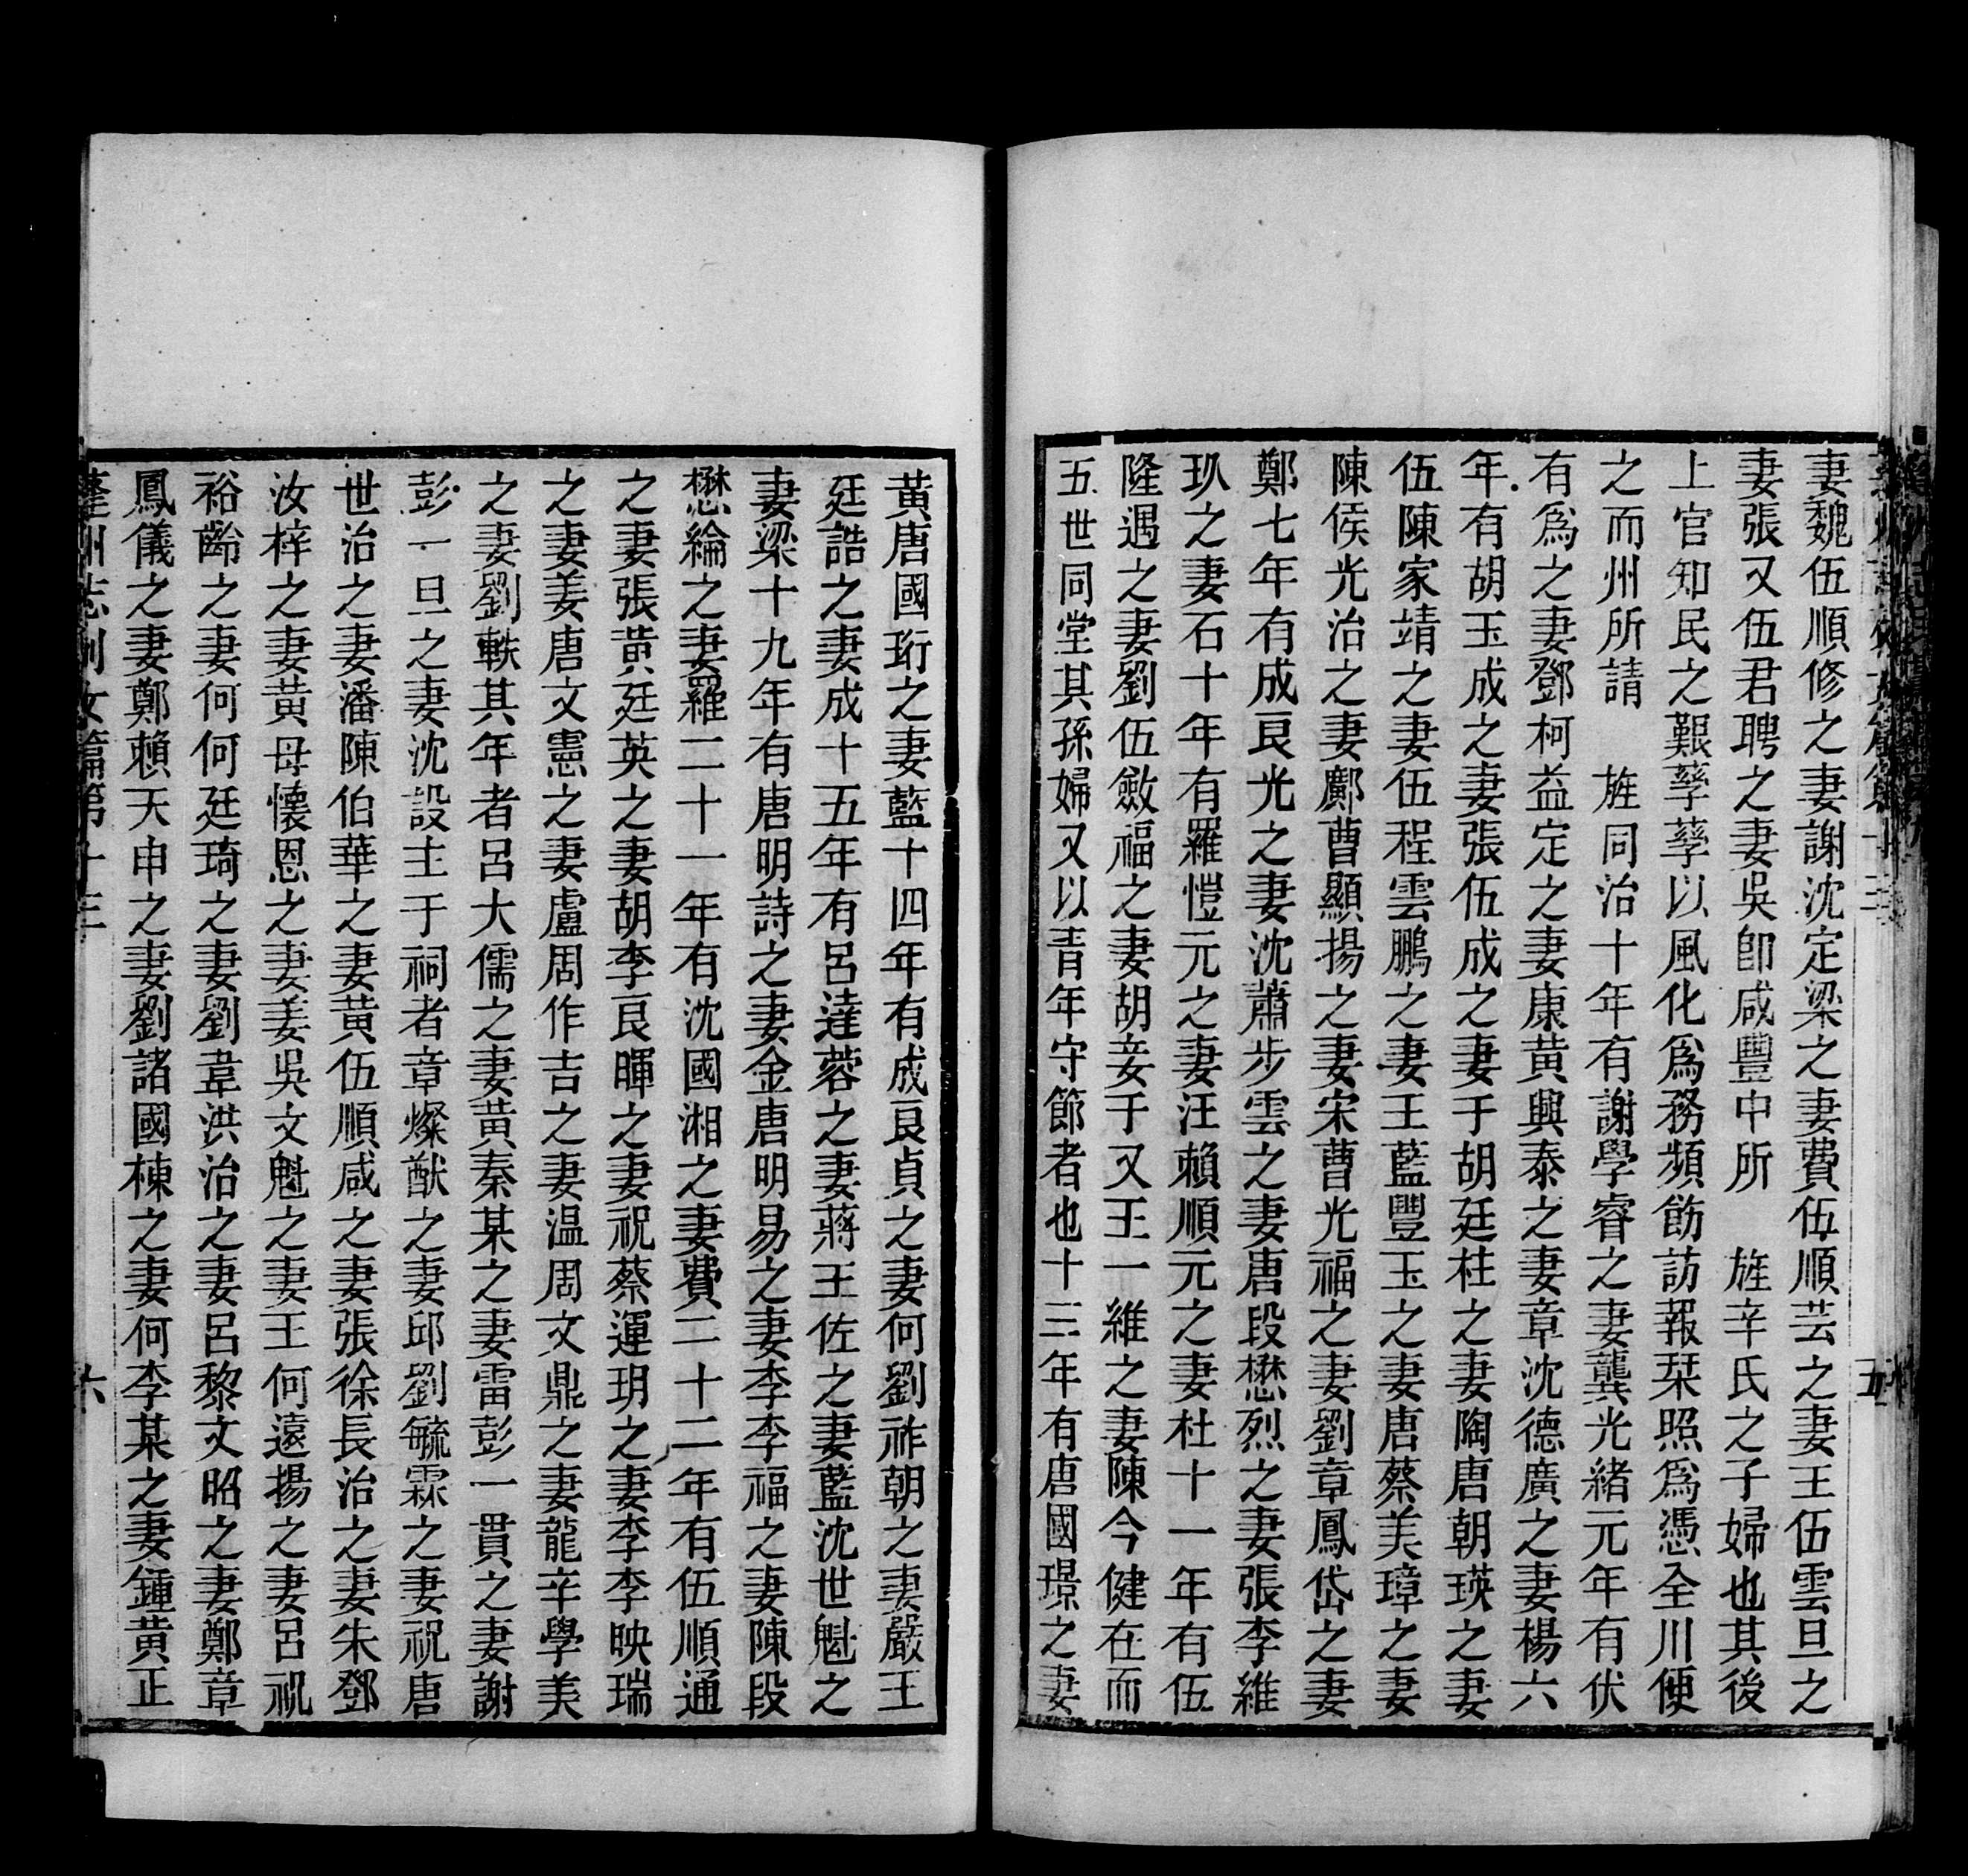 妻魏伍順修之妻謝沈定梁之妻費伍順芸之妻王伍雲旦之
妻張又伍君聘之妻吳卽咸豐中所 旌辛氏之子婦也其後
上官知民之艱孳孳以風化爲務頻飭訪報栞照爲憑全川便
之而州所請 旌同治十年有謝學睿之妻龔光緒元年有伏
有爲之妻鄧柯益定之妻康黃興泰之妻章沈德廣之妻楊六
年有胡玉成之妻張伍成之妻于胡廷柱之妻陶唐朝瑛之妻
伍陳家靖之妻伍程雲鵬之妻王藍豐玉之妻唐蔡美璋之妻
陳侯光治之妻鄺曹顯揚之妻宋曹光福之妻劉章鳳岱之妻
鄭七年有成艮光之妻沈蕭步雲之妻唐段懋烈之妻張李維
玖之妻石十年有羅愷元之妻汪賴順元之妻杜十一年有伍
隆遇之妻劉伍斂福之妻胡妾于又王一維之妻陳今健在而
五世同堂其孫婦又以青年守節者也十三年有唐國璟之妻
黃唐國珩之妻藍十四年有成艮貞之妻何劉祚朝之妻嚴王
廷誥之妻成十五年有呂達蓉之妻蔣王佐之妻藍沈世魁之
妻梁十九年有唐明詩之妻金唐明易之妻李李福之妻陳段
懋綸之妻羅二十一年有沈國湘之妻費二十二年有伍順通
之妻張黃廷英之妻胡李艮暉之妻祝蔡運玥之妻李李映瑞
之妻姜唐文憲之妻盧周作吉之妻溫周文鼎之妻龍辛學美
之妻劉軼其年者呂大儒之妻黃秦某之妻雷彭一貫之妻謝
彭一旦之妻沈設主于祠者章燦猷之妻邱劉毓霖之妻祝唐
世治之妻潘陳伯華之妻黃伍順咸之妻張徐長治之妻朱鄧
汝梓之妻黃母懷恩之妻姜吳文魁之妻王何遠揚之妻呂祝
裕齡之妻何何廷琦之妻劉韋洪治之妻呂黎文昭之妻鄭章
鳳儀之妻鄭賴天申之妻劉諸國棟之妻何李某之妻鍾黃正
蓬州志列女篇第十三 六